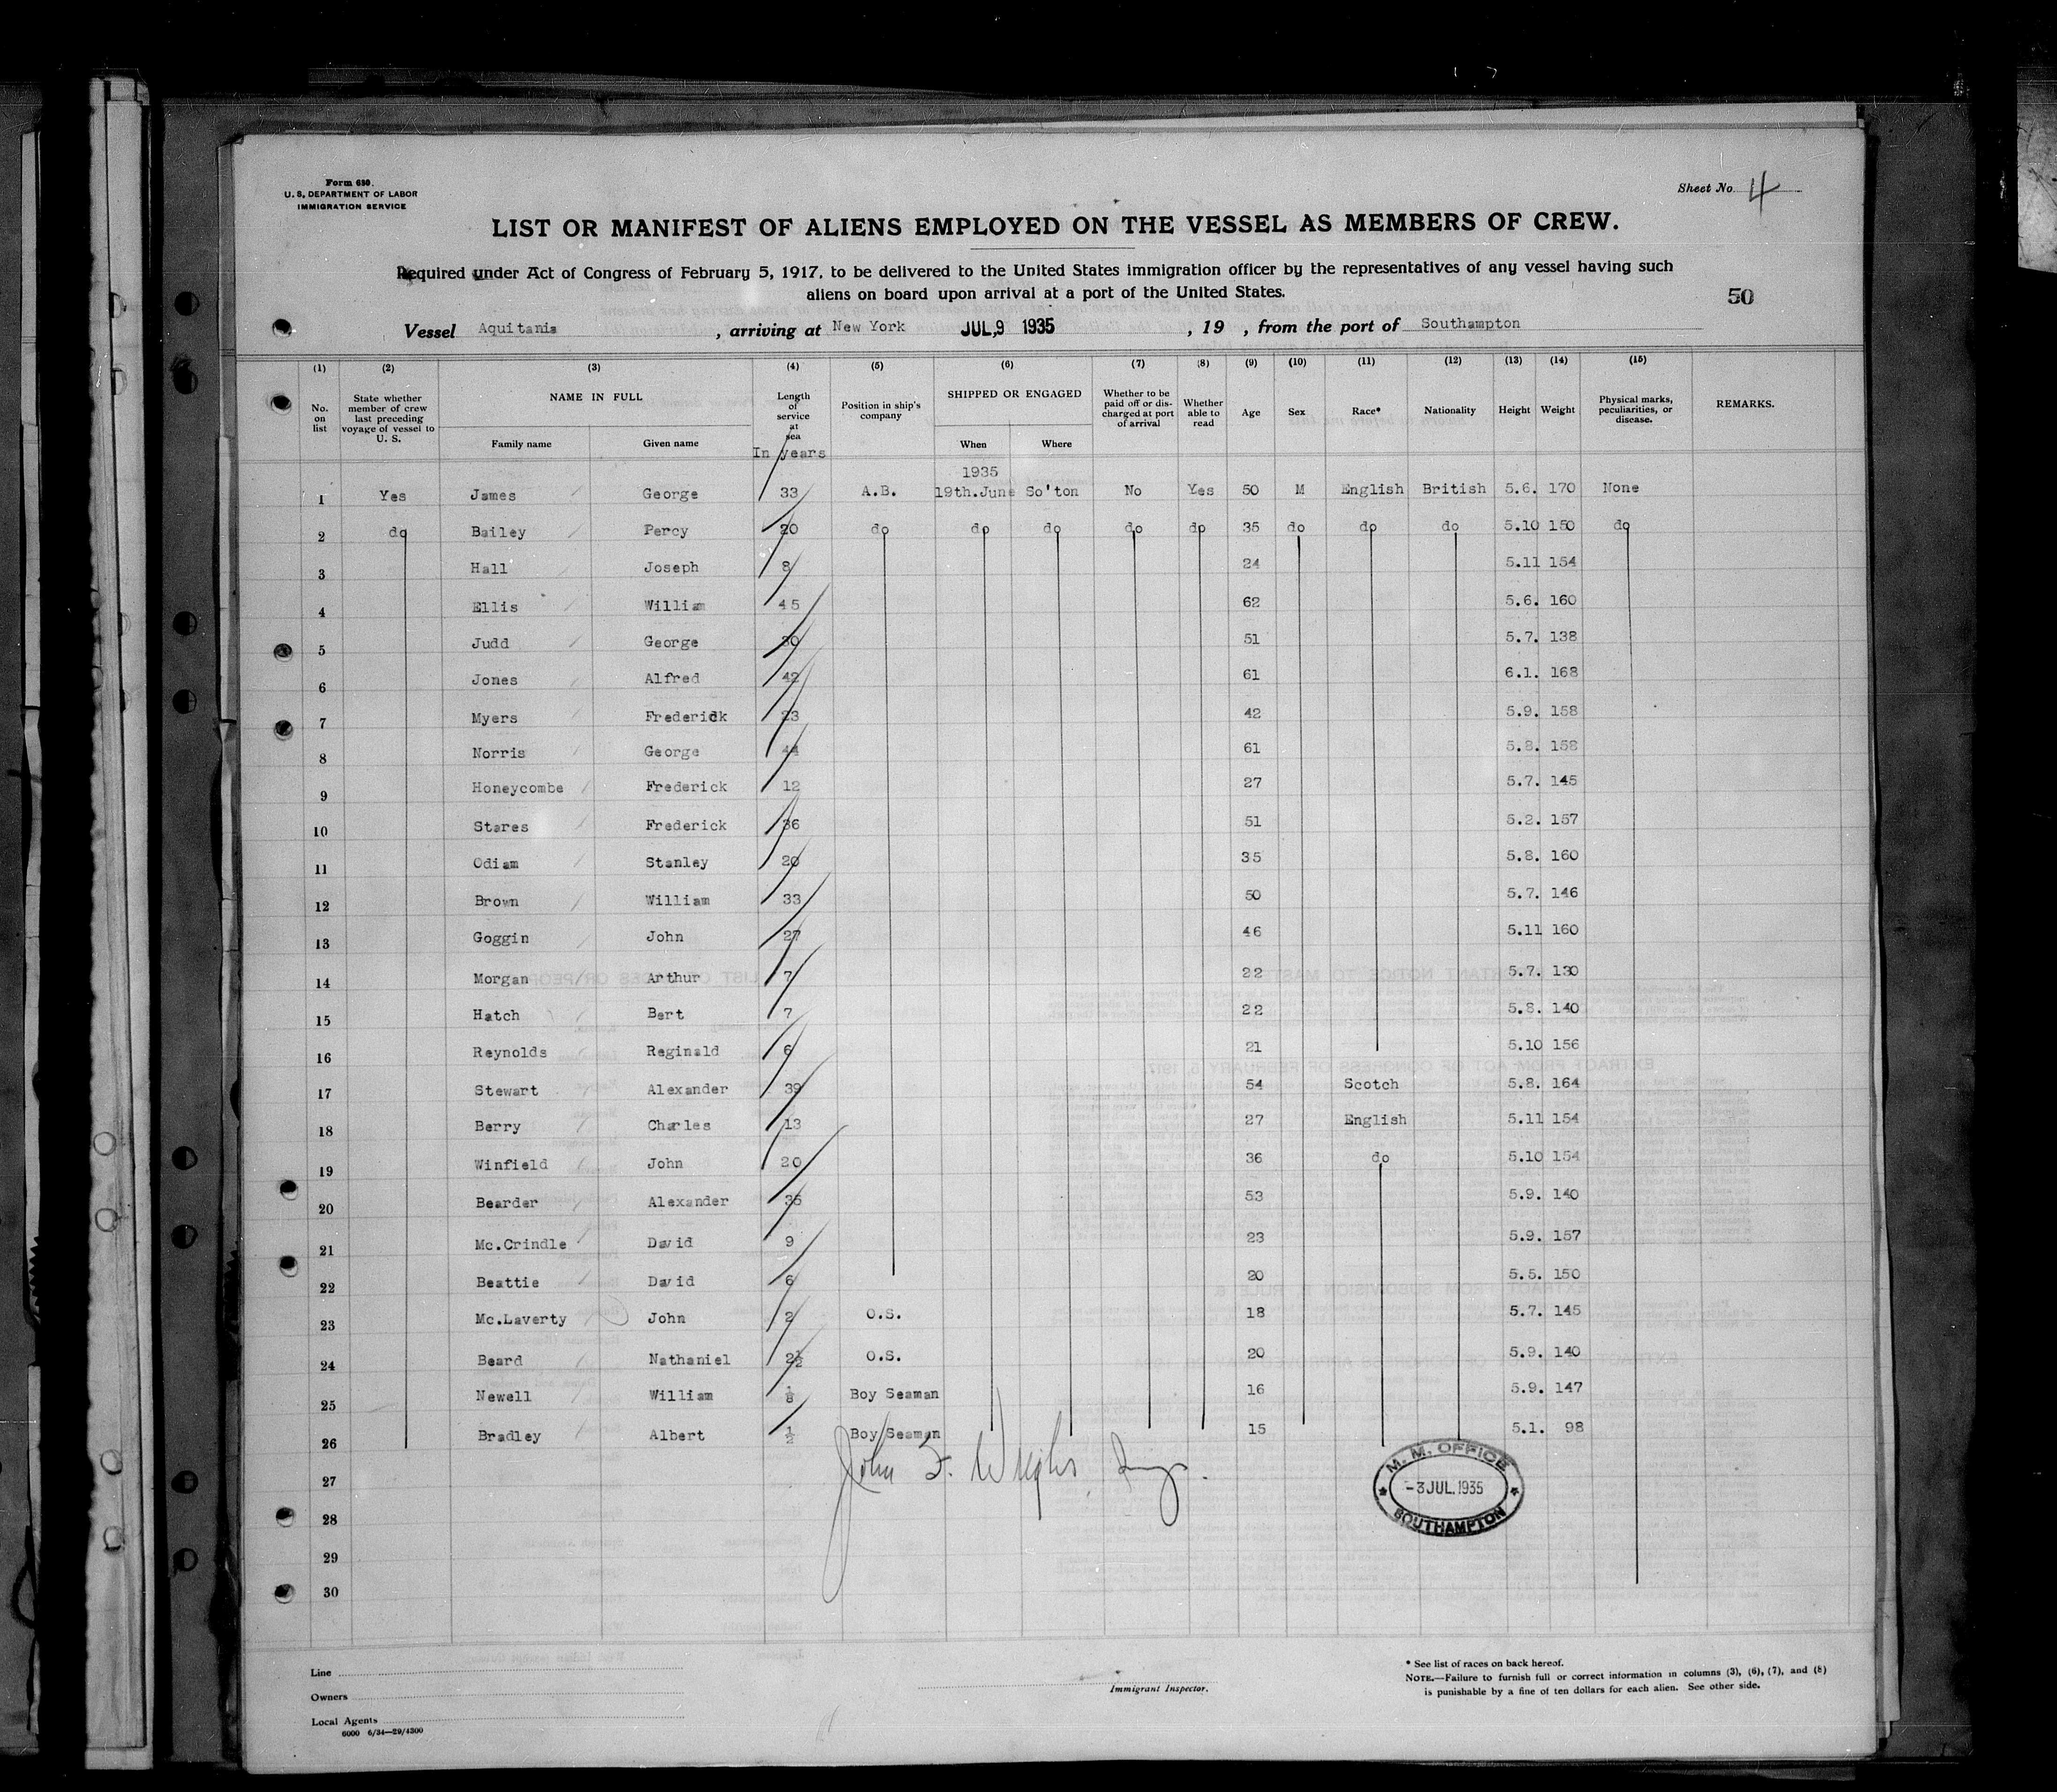 Form 680.
U. S. DEPARTMENT OF LABOR
IMMIGRATION SERVICE
Sheet No. 4
LIST OR MANIFEST OF ALIENS EMPLOYED ON THE VESSEL AS MEMBERS OF CREW.
Required under Act of Congress of February 5, 1917, to be delivered to the United States immigration officer by the representatives of any vessel having such
aliens on board upon arrival at a port of the United States.
50
Vessel Aquitania, arriving at New York JUL 9 1935, 19 , from the port of Southampton
(1) (2) (3) (4) (5) (6) (7) (8) (9) (10) (11) (12) (13) (14) (15)
No. on list State whether member of crew last preceding voyage of vessel to U. S. NAME IN FULL Family name Given name Length of service at sea In years Position in ship's company SHIPPED OR ENGAGED When Where Whether to be paid off or discharged at port of arrival Whether able to read Age Sex Race* Nationality Height Weight Physical marks, peculiarities, or disease. REMARKS.
1935
1 Yes James George 33 A.B. 19th.June So'ton No Yes 50 M English British 5.6. 170 None
2 do Bailey Percy 20 do do do do do 35 do do do 5.10 150 do
3 Hall Joseph 8 24 5.11 154
4 Ellis William 45 62 5.6. 160
5 Judd George 30 51 5.7. 138
6 Jones Alfred 42 61 6.1. 168
7 Myers Frederick 23 42 5.9. 158
8 Norris George 44 61 5.8. 158
9 Honeycombe Frederick 12 27 5.7. 145
10 Stares Frederick 36 51 5.2. 157
11 Odiam Stanley 20 35 5.8. 160
12 Brown William 33 50 5.7. 146
13 Goggin John 27 46 5.11 160
14 Morgan Arthur 7 22 5.7. 130
15 Hatch Bert 7 22 5.8. 140
16 Reynolds Reginald 6 21 5.10 156
17 Stewart Alexander 39 54 Scotch 5.8. 164
18 Berry Charles 13 27 English 5.11 154
19 Winfield John 20 36 do 5.10 154
20 Bearder Alexander 35 53 5.9. 140
21 Mc.Crindle David 9 23 5.9. 157
22 Beattie David 6 20 5.5. 150
23 Mc.Laverty John 2 O.S. 18 5.7. 145
24 Beard Nathaniel 2½ O.S. 20 5.9. 140
25 Newell William Boy Seaman 16 5.9. 147
26 Bradley Albert ½ Boy Seaman 15 5.1. 98
27
28
29
30
John F.
M. M. OFFICE
-3 JUL. 1935
SOUTHAMPTON
Line
Owners
Local Agents
6000 6/34—29/4300
Immigrant Inspector.
* See list of races on back hereof.
NOTE.—Failure to furnish full or correct information in columns (3), (6), (7), and (8)
is punishable by a fine of ten dollars for each alien. See other side.